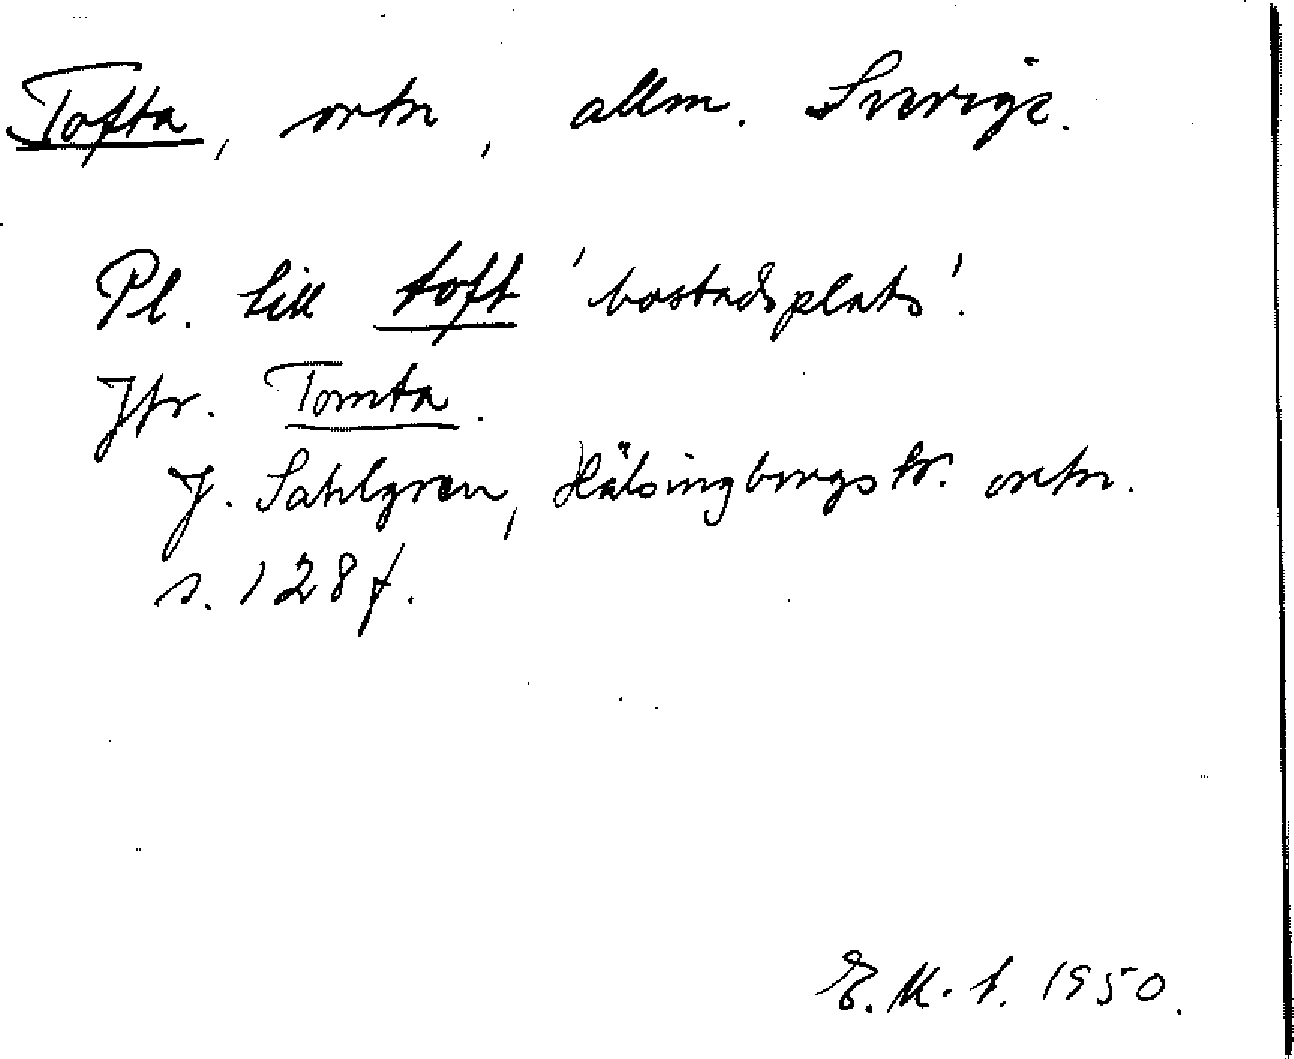 Tofta, ortn, allm. Sverige.
Pl. till toft 'bostadsplats'.
Jfr. Tomta.
J. Sahlgren, Hälsingborgstr. ortn.
s. 128 f.
1950.